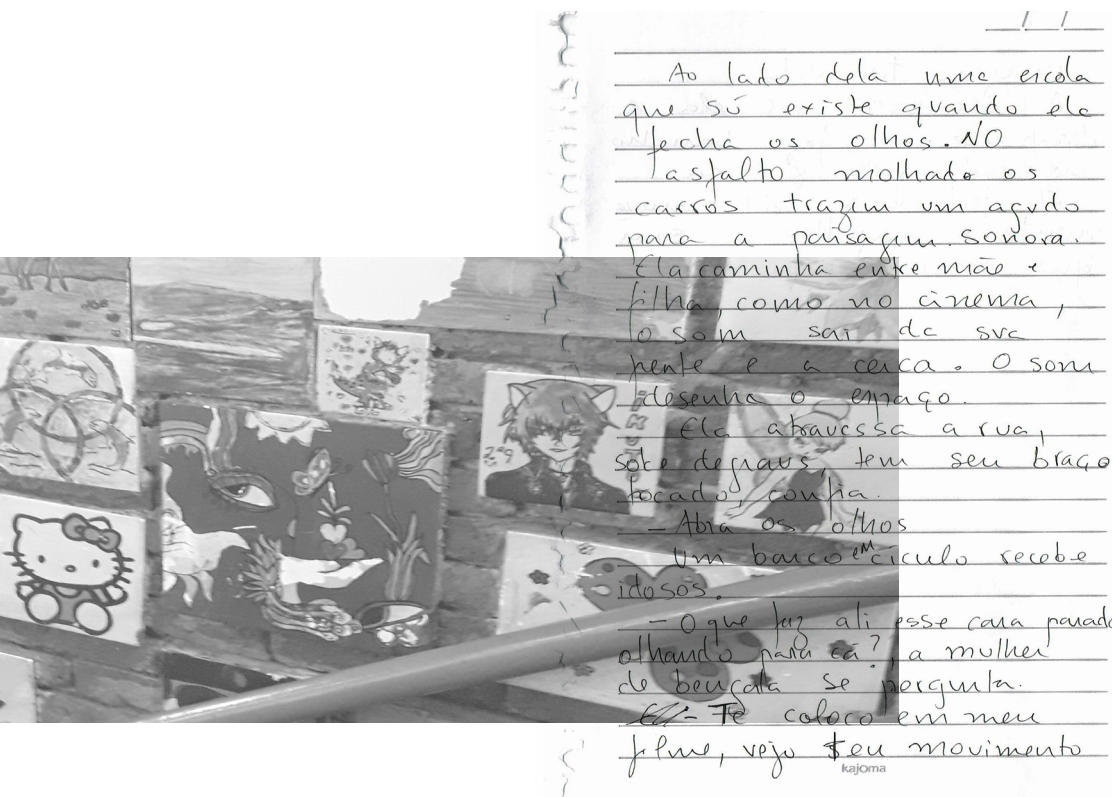 Ao lado dela uma escola
que só existe quando ela
fecha os olhos. NO
asfalto molhado os
carros trazem um agudo
para a paisagem sonora.
Ela caminha entre mãe e
filha como no cinema,
o som sai de sua
frente e a cerca. O som
desenha o espaço.
Ela atravessa a rua,
sobe degraus, tem seu braço
tocado, confia.
- Abra os olhos
Um banco em círculo recebe
idosos.
- O que faz ali esse cara parado
olhando para cá?, a mulher
de bengala se pergunta.
- Te coloco em meu
filme, vejo seu movimento
kajoma